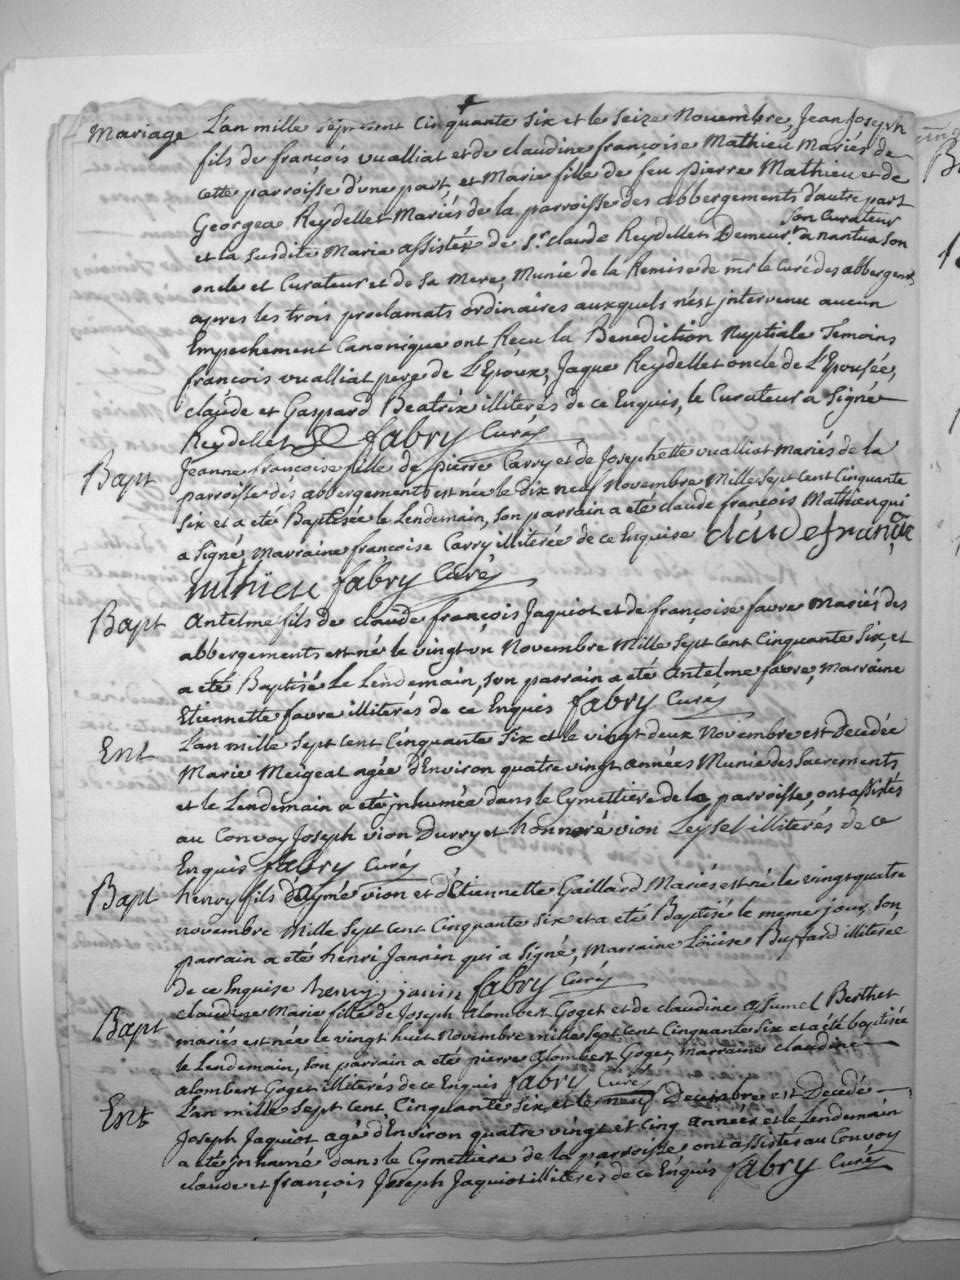 Mariage L'an mille sept cent Cinquante Six et le Seize Novembre, Jean Joseph
fils de françois vualliat et de claudine françoise Mathieu Mariés de
cette parroisse d'une part, et Marie fille de feu pierre Mathieu et de
Georgea Reydellet Mariés de la parroisse des abbergements d'autre part
Son Curateur
et la Susdite Marie assistée de Sr. claude Reydellet Demeurt. a nantua Son
oncle et Curateur et de Sa Mere, Munie de la Remise de mr le Curé des abbergemts
apres les trois proclamats ordinaires auxquels n'est jntervenu aucun
Empechement Canonique ont Reçu la Benediction Nuptiale Temoins
françois vualliat pere de L'Epoux, Jaque Reydellet oncle de L'Epousée,
claude et Gaspard Beatrix illiterés de ce Enquis, le Curateur a Signé
Reydellet fabry Curé
Bapt Jeanne francoise fille de pierre Carry et de Josephette vualliat mariés de la
parroisse des abbergements est née le Dix neuf Novembre Mille Sept Cent Cinquante
Six et a été Baptisée le Lendemain, Son parrain a été claude françois Mathieu qui
a Signé, Marraine françoise Carry illiterée de ce Enquise claude françois
Muthieu fabry Curé
Bapt Antelme fils de claude françois Jaquiot et de françoise favre Mariés des
abbergements est né le vingt vn Novembre Mille Sept Cent Cinquante Six, et
a été Baptisé Le Lendemain, Son parrain a été Antelme favre, Marraine
Etiennette favre illiterés de ce Enquis fabry Curé
Ent L'an mille Sept Cent Cinquante Six et le vingt deux Novembre est Decedée
Marie Meigeat agée d'Environ quatre vingt années Munie des Sacrements
et le Lendemain a été jnhumée dans le Cymettiere de la parroisse, ont assistés
au Convoy Joseph vion Durry et honnoré vion Leysel illiterés de ce
Enquis fabry Curé
Bapt henry fils d'Aymé vion et d'Etiennette Gaillard Mariés est né le vingt quatre
novembre Mille Sept Cent Cinquante Six et a été Baptisé le meme jour, Son
parrain a été henri Jannin qui a Signé, Marraine Loüise Buffard illiterée
de ce Enquise henry janin fabry Curé
Bapt claudine Marie fille de Joseph Alombert Goget et de claudine Berthet
mariés est née le vingt huit Novembre mille Sept Cent Cinquante Six et a été baptisée
le Lendemain, Son parrain a été pierre Alombert Goget, marraine claudine
alombert Goget illiterés de ce Enquis fabry Curé
Ent L'an mille Sept Cent Cinquante Six et le neuf Decembre est Decedé
Joseph Jaquiot agé d'Environ quatre vingt et Cinq années et le Lendemain
a été jnhumé dans le Cymettiere de la parroisse ont assistés au Convoy
claude et françois Joseph Jaquiot illiterés de ce Enquis fabry Curé